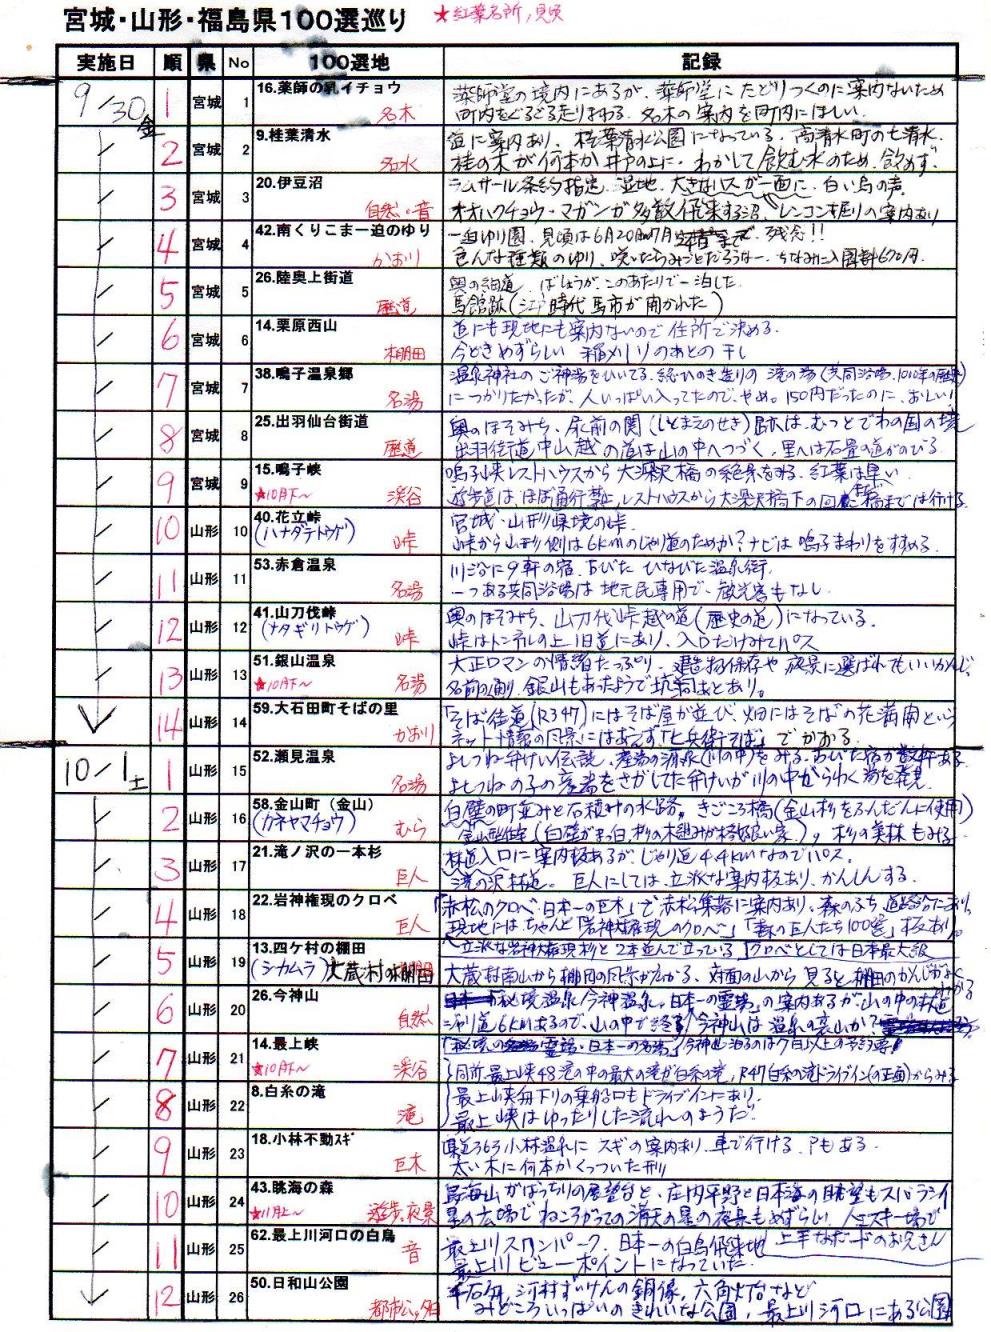 宮城・山形・福島県100選巡り ★紅葉名所，見頃
実施日 順 県 No 100選地 記録
9/30金 1 宮城 1 16.薬師の乳イチョウ 名木 薬師堂の境内にあるが、薬師堂にたどりつくのに案内ないため
町内をぐるぐる走りまわる。名木の案内を町内にほしい。
2 宮城 2 9.桂葉清水 名水 道に案内あり、桂葉清水公園になっている。高清水町の七清水。
桂の木が何本か井戸の上に。わかして飲む水のため、飲めず。
3 宮城 3 20.伊豆沼 自然・音 ラムサール条約指定、湿地、大きなハスが一面に、白い鳥の声。
オオハクチョウ・マガンが多数飛来する沼。レンコン堀りの案内あり
4 宮城 4 42.南くりこま一迫のゆり かおり 一迫ゆり園、見頃は6月20日〜7月 まで、残念!!
色んな種類のゆり、咲いたらみごとだろうなー。ちなみに入園料670円。
5 宮城 5 26.陸奥上街道 歴道 奥の細道 ばしょうが、このあたりで一泊した。
馬館跡(江戸時代 馬市が開かれた)
6 宮城 6 14.栗原西山 棚田 道にも現地にも案内ないので住所で決める。
今どきめずらしい 稲刈りのあとの干し
7 宮城 7 38.鳴子温泉郷 名湯 温泉神社のご神湯をひいてる、総ひのき造りの滝の湯(共同浴場、
につかりたかったが、人いっぱい入ってたので、やめ。150円だったのに、おしい!
8 宮城 8 25.出羽仙台街道 歴道 奥のほそみち、尿前の関(しとまえのせき)跡は、むつとでわの国の境
出羽街道中山越の道は山の中へつづく。里へは石畳の道がのびる
9 宮城 9 15.鳴子峡 ★10月下〜 渓谷 鳴子峡レストハウスから大深沢橋の絶景をみる、紅葉は早い
遊歩道は、ほぼ通行禁、レストハウスから大深沢橋下の回 橋までは行ける
10 山形 10 40.花立峠 (ハナダテトウゲ) 峠 宮城・山形県境の峠。
峠から山形側は6kmのじゃり道のためか?ナビは鳴子まわりをすすめる。
11 山形 11 53.赤倉温泉 名湯 川沿に9軒の宿、古びた ひなびた温泉街。
一つある共同浴場は地元民専用で、観光客もなし
12 山形 12 41.山刀伐峠 (ナタギリトウゲ) 峠 奥のほそみち、山刀伐峠越の道(歴史の道)になっている。
峠はトンネルの上、旧道にあり、入口だけみてパス
13 山形 13 51.銀山温泉 ★10月下〜 名湯 大正ロマンの情緒たっぷり。建造物保存や夜景に選ばれてもいいかんじ。
名前の通り、銀山もあったようで坑洞あとあり。
14 山形 14 59.大石田町そばの里 かおり 「そば街道(R347)にはそば屋が並び、畑にはそばの花満開という
ネット情報の風景にはあえず「七兵衛そば」でかおる。
10/1土 1 山形 15 52.瀬見温泉 名湯 よしつね・弁けい伝説、産湯の源泉(川の中)をみる。古びた宿が数軒ある
よしつねの子の産湯をさがしてた弁けいが川の中からわく湯を発見
2 山形 16 58.金山町(金山) (カネヤマチョウ) むら 白壁の町並みと石積みの水路。きごころ橋(金山杉をふんだんに使用)
金山型住宅(白壁がまっ白、杉の木組みが 家。)，杉の美林もみる
3 山形 17 21.滝ノ沢の一本杉 巨人 林道入口に案内板あるが、じゃり道4.4kmなのでパス。
滝の沢林道。巨人にしては、立派な案内板あり、かんしんする。
4 山形 18 22.岩神権現のクロベ 巨人 「赤松のクロベ・日本一の巨木」で赤松集落に案内あり。森のふち、道路沿にあり。
現地にはちゃんと「岩神大権現のクロベ」「森の巨人たち100選」板あり。
5 山形 19 13.四ケ村の棚田 (シカムラ) 大蔵村の棚田 立派な岩神大権現杉と2本並んで立っている 「クロベとしては日本最大級
大蔵村南山から棚田の風景が広がる、対面の山から見ると、棚田のかんじがよくわかる
6 山形 20 26.今神山 自然 「秘境温泉 今神温泉。日本一の霊場」の案内あるが、山の中の林道
じゃり道6kmあるので、山の中で終る 今神山は温泉の裏山か?
7 山形 21 14.最上峡 ★10月下〜 渓谷 同所、最上峡48滝の中の最大の滝が白糸の滝、R47白糸の滝ドライブイン(の正面)からみる
8 山形 22 8.白糸の滝 滝 最上峡舟下りの乗船口もドライブインにあり。
最上峡はゆったりした流れのようだ。
9 山形 23 18.小林不動スギ 巨木 県道363小林温泉に スギの案内あり、車で行ける。Pもある。
太い木に何本かくっついた形
10 山形 24 43.眺海の森 ★11月上〜 遊歩、夜景 鳥海山がばっちりの展望台と、庄内平野と日本海の眺望もスバラシイ
星の広場で ねころがっての満天の星の夜景もめずらしい。人工スキー場で
11 山形 25 62.最上川河口の白鳥 音 最上川スワンパーク、日本一の白鳥飛来地 上半なボードのお兄さん
最上川ビューポイントになっていた。
12 山形 26 50.日和山公園 都市公、夕日 千石船、河村ずいけんの銅像、六角灯台など
みどころいっぱいのきれいな公園，最上川河口にある公園